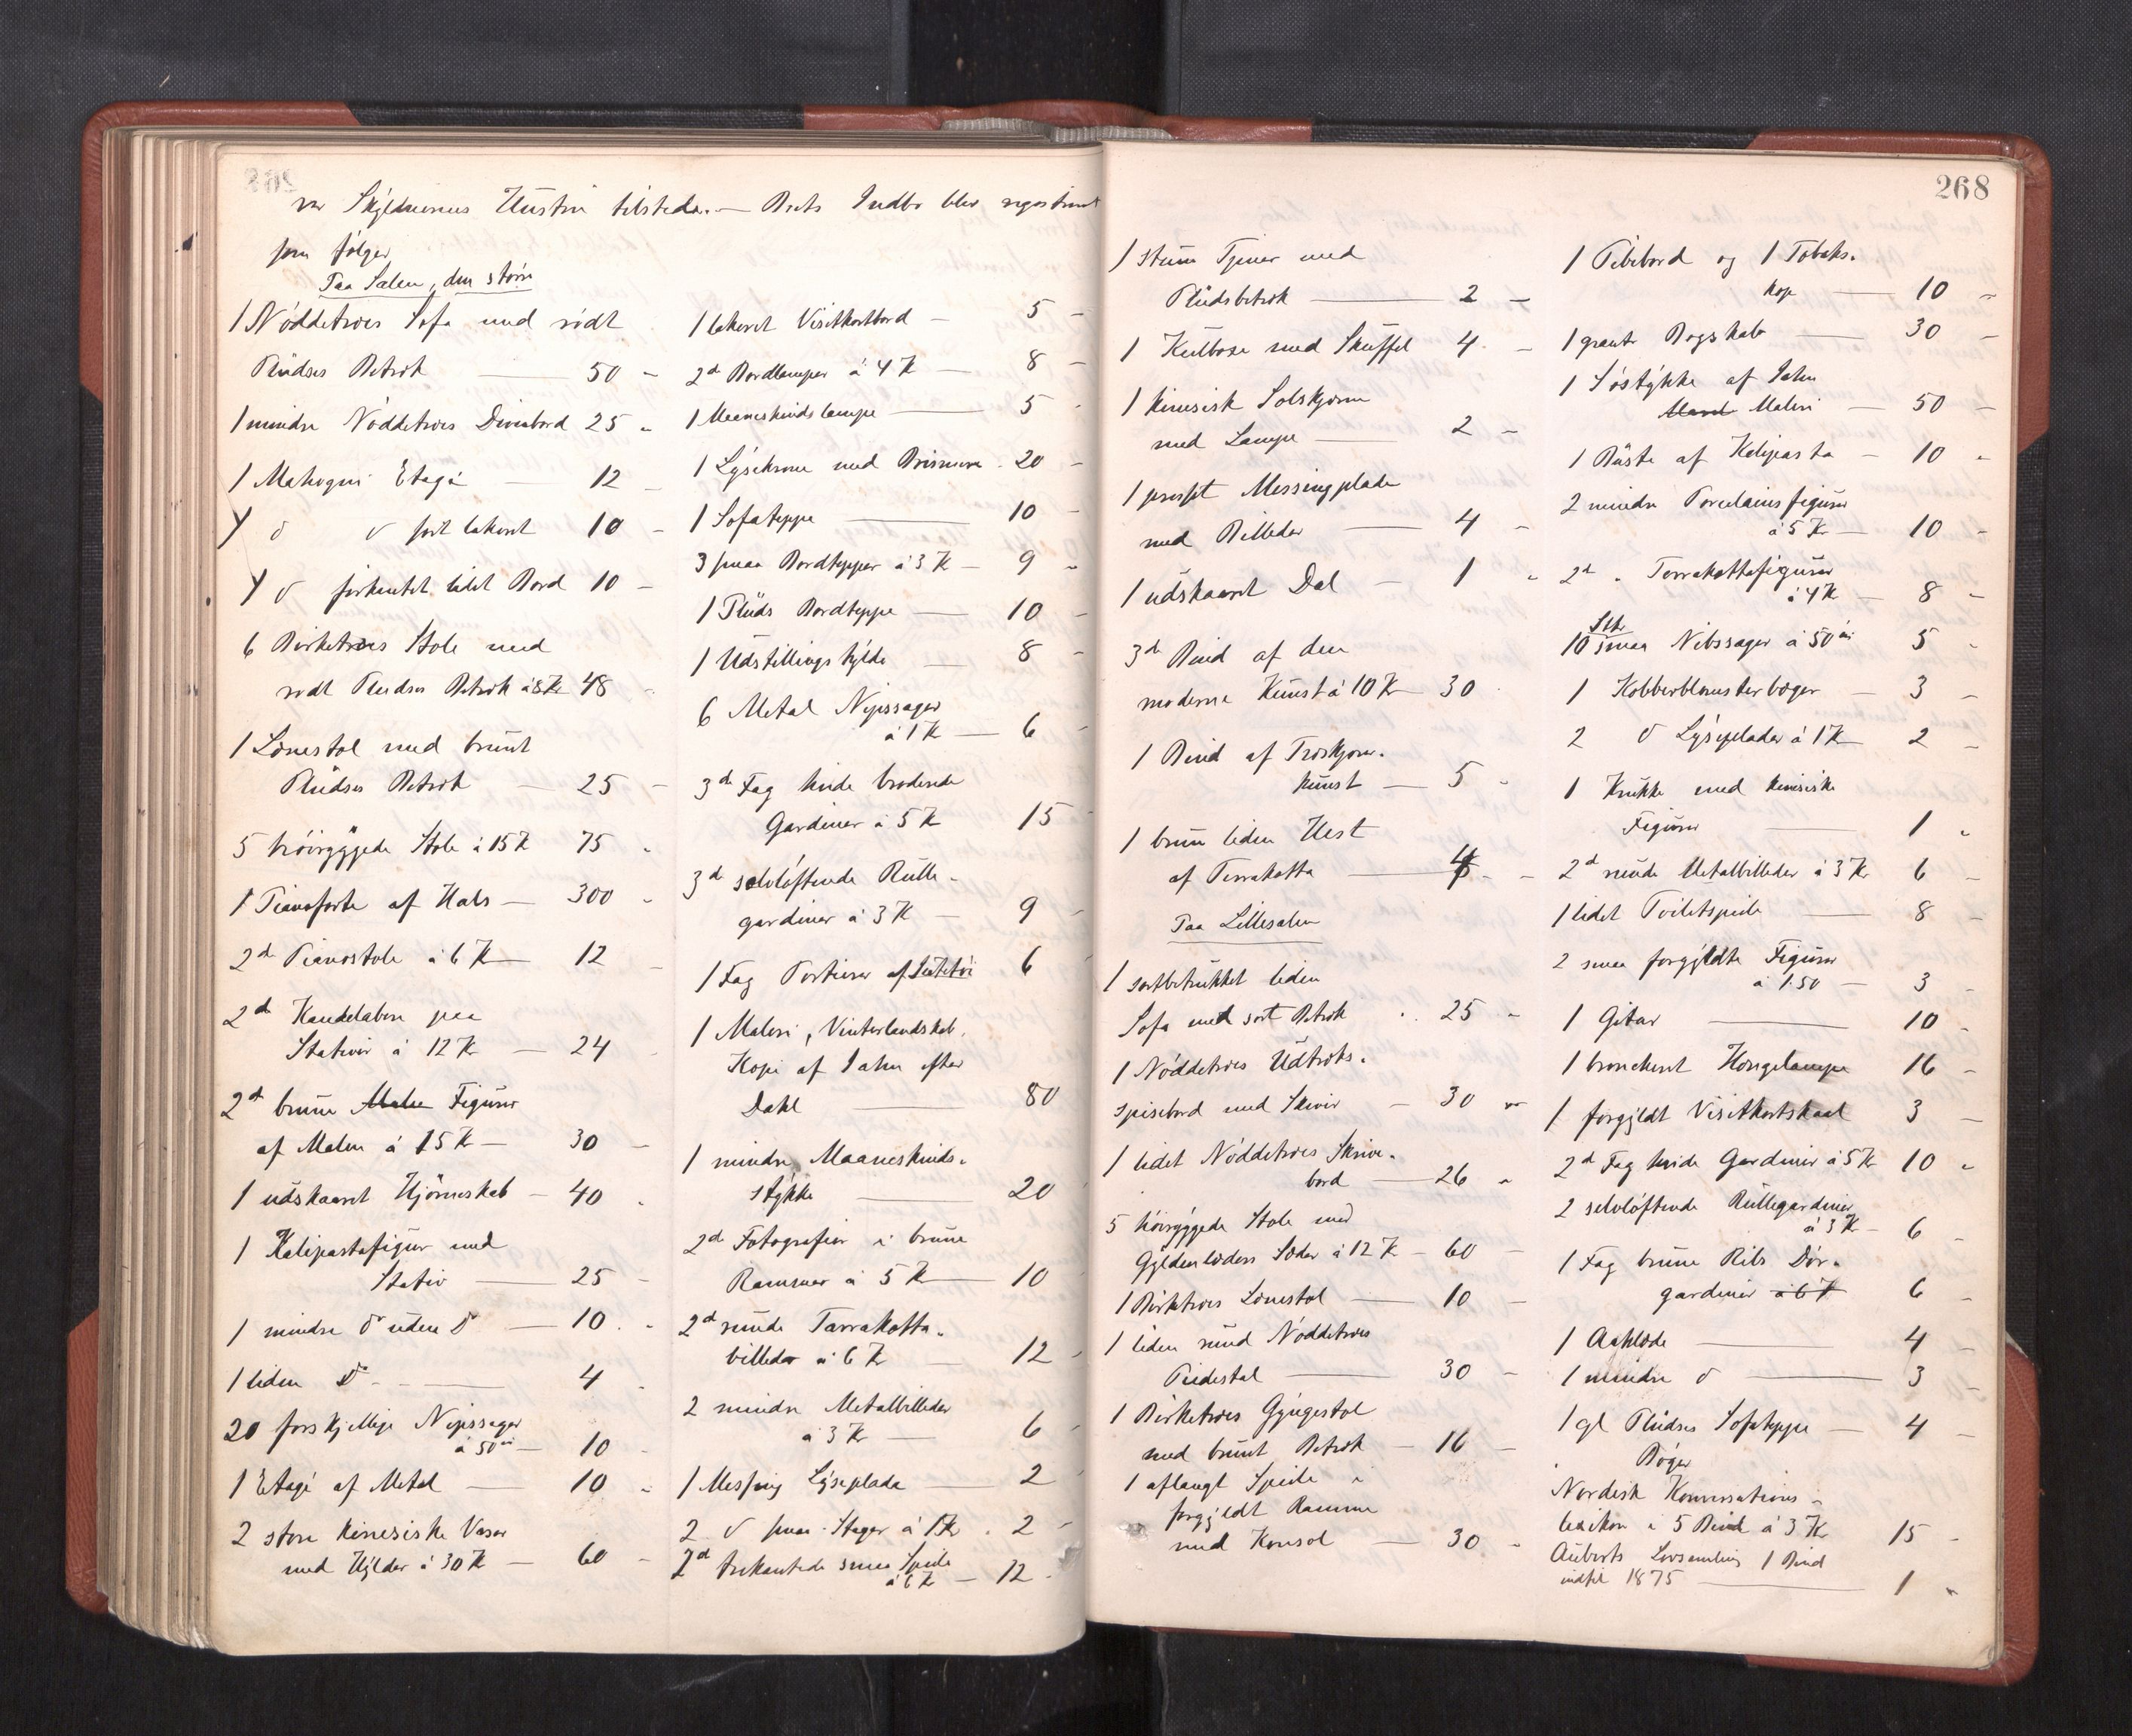 var Skyldnerens Hustru tilstede. — Dets Indbo blev registreret
som følger
Paa Salen, den større
1 Nøddetræes Sofa med rødt
Plüdses Betræk — 50 -
1 mindre Nøddetræes Divanbord 25 "
1 Mahogni Etagé — 12
1 d d sort lakeret 10 -
1 d firkantet lidet Bord 10 -
6 Birketræes Stole med
rødt Pludses Betræk à 8 Kr 48
1 Lænestol med brunt
Plüdses Betræk — 25 -
5 høiryggede Stole à 15 K 75 "
1 Pianoforte af Hals — 300 "
2d Pianostole à 6 K — 12
2d Kandelabere paa
Stativer à 12 K — 24
2d brune Malm Figurer
af Malm à 15 K — 30 -
1 udskaaret Hjørneskab — 40 "
1 Kalipastafigur med
Stativ — 25 -
1 mindre do uden do — 10. "
1 liden do — 4
20 forskjellige Nipssager
à 50 øre — 10
1 Etagé af Metal — 10 "
2 store kinesiske Vaser
med Hylder à 30 K — 60 -
1 lakeret Visitkortbord — 5 -
2d Bordlamper à 4 K — 8 -
1 Maaneskinds lampe — 5
1 Lysekrone med Prismer . 20 -
1 Sofateppe — 10 -
3 smaa Bordtepper à 3 K — 9 "
1 Plüds Bordteppe — 10 -
1 Udstillings hylde — 8 -
6 Metal Nipssager
à 1 K — 6 -
3d Fag hvide broderede
Gardiner à 5 K 15 -
3d selvløftende Rulle-
gardiner à 3 K — 9 -
1 Fag Portierer af Jutetøi 6
1 Maleri, Vinterlandskab,
Kopi af Dahn efter
Dahl — 80
1 mindre Maaneskinds-
stykke — 20
2d Fotografier i brune
Rammer à 5 K — 10
2d runde Tarrakotta-
billeder à 6 K — 12 -
2 mindre Metalbilleder
à 3 K — 6 -
1 Messing Lyseplade — 2
2 d smaa Stager à 1 K . 2 -
2d trekantede smaa Speile
à 6 K — 12 .
268
1 stum Tjener med
Plüdsbetræk — 2 -
1 Kulboxe med Skuffel 4. -
1 kinesisk Solskjærm
med Lampe — 2 -
1 presset Messingplade
med Billeder — 4 -
1 udskaaret Dal — 1 "
3d Bind af den
moderne Kunst à 10 K — 30
1 Bind af Træskjærer-
kunst — 5 -
1 brun liden Hest
af Terrakotta — 4 -
Paa Lillesalen
1 sortbetrukket liden
Sofa med sort Betræk . . 25 -
1 Nøddetræes Udtræks-
spisebord med Skiver — 30 -
1 lidet Nøddetræes Skrive-
bord — 26 "
5 høiryggede Stole med
Gyldenlæders Sæder à 12 K — 60 -
1 Birketræes Lænestol — 10 -
1 liden rund Nøddetræes
Piedestal — 30 -
1 Birketræes Gyngestol
med brunt Betræk — 16 -
1 aflangt Speile i
forgyldt Ramme
med Konsol — 30 -
1 Pibebord og 1 Tobaks-
kop — 10 -
1 grant Bogskab — 30 -
1 Søstykke af Dahn
Maleri — 50 -
1 Büste af Kalipasta — 10 "
2 mindre Porcelainsfigurer
à 5 K — 10 -
2d " Terrakottafigurer
à 4 K — 8 -
10 Stk smaa Nibssager à 50 øre 5 -
1 Kobberblomsterbæger — 3 -
2 d Lyseplader à 1 K — 2 -
1 Krukke med kinesiske
Figurer — 1 "
2d runde Metalbilleder à 3 K 6 -
1 lidet Toiletspeile — 8 -
2 smaa forgyldte Figurer
à 1.50 — 3 -
1 Gitar — 10 -
1 broncheret Hængelampe 16 -
1 forgyldt Visitkortskaal 3 -
2d Fag hvide Gardiner à 5 K 10 "
2 selvløftende Rullegardiner
à 3 K — 6 -
1 Fag brune Ribs Dør-
gardiner à 6 K 6 -
1 Aaklæde — 4 -
1 mindre d — 3 -
1 gl Plüdses Sofateppe — 4 -
Bøger
Nordisk Konversations-
lexikon i 5 Bind à 3 K 15 -
Auberts Lovsamling 1 Bind
indtil 1875 — 1 "